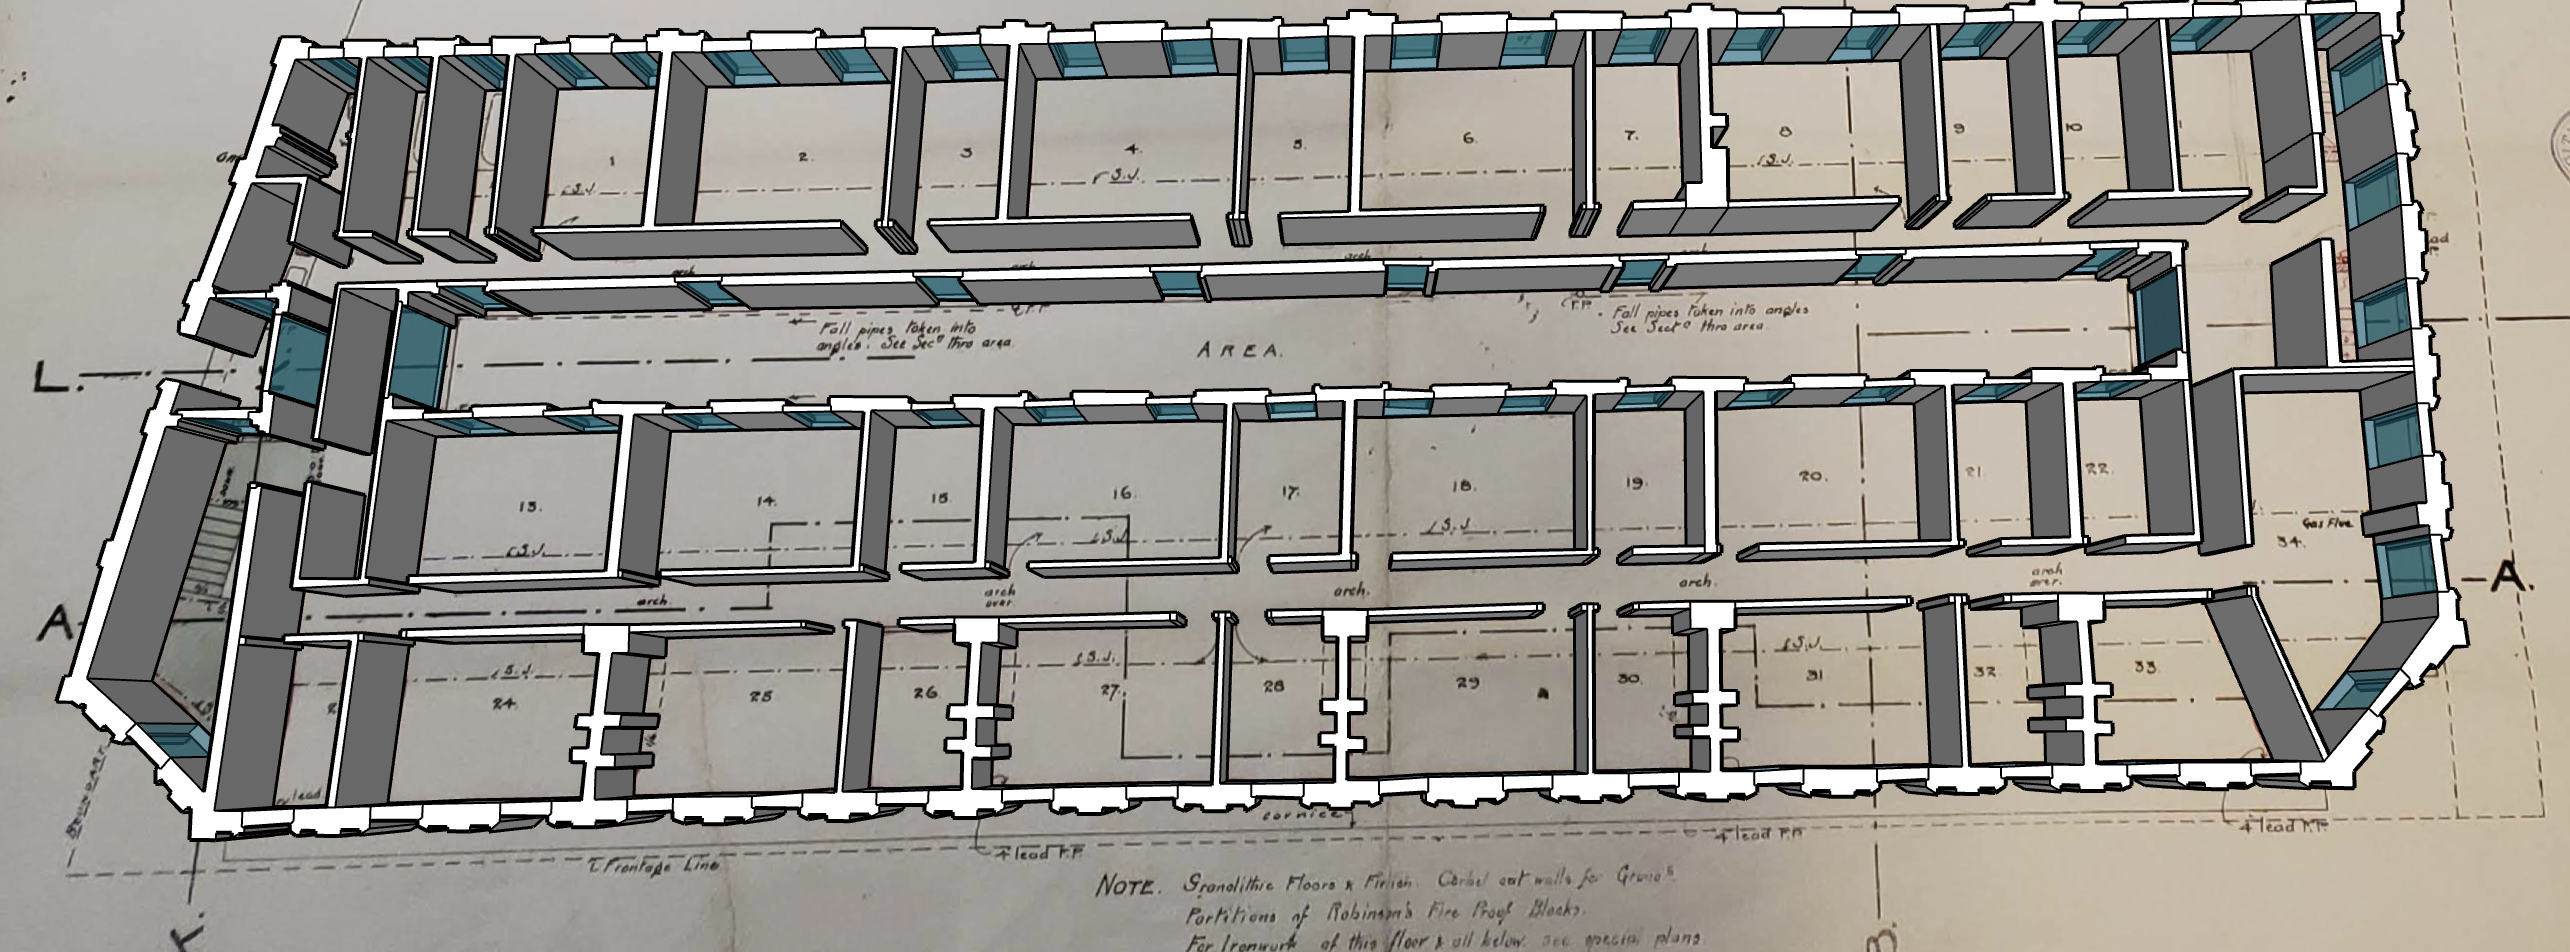 1
2.
3
4.
5.
6.
7.
8
9
10
S.J.
S.J.
S.J.
arch
arch
arch
arch
F.P.
Fall pipes taken into
angles. See Secn thro area.
F.P. Fall pipes taken into angles
See Sectn thro area.
AREA.
L.
13.
14.
15.
16.
17.
18.
19.
20.
21.
22.
Gas Flue
34.
S.J.
S.J.
S.J.
down
A
A.
arch.
arch
over.
arch.
arch.
arch
over.
S.J.
S.J.
S.J.
24.
25
26.
27.
28
29
30.
31
32
33.
lead
Boundary
cornice
4 lead F.P.
4 lead F.P.
4 lead F.P.
Frontage Line
K.
B.
NOTE. Granolithic Floors & Finish. Corbel out walls for Grunds.
Partitions of Robinson's Fire Proof Blocks.
For Ironwork of this floor & all below see special plans